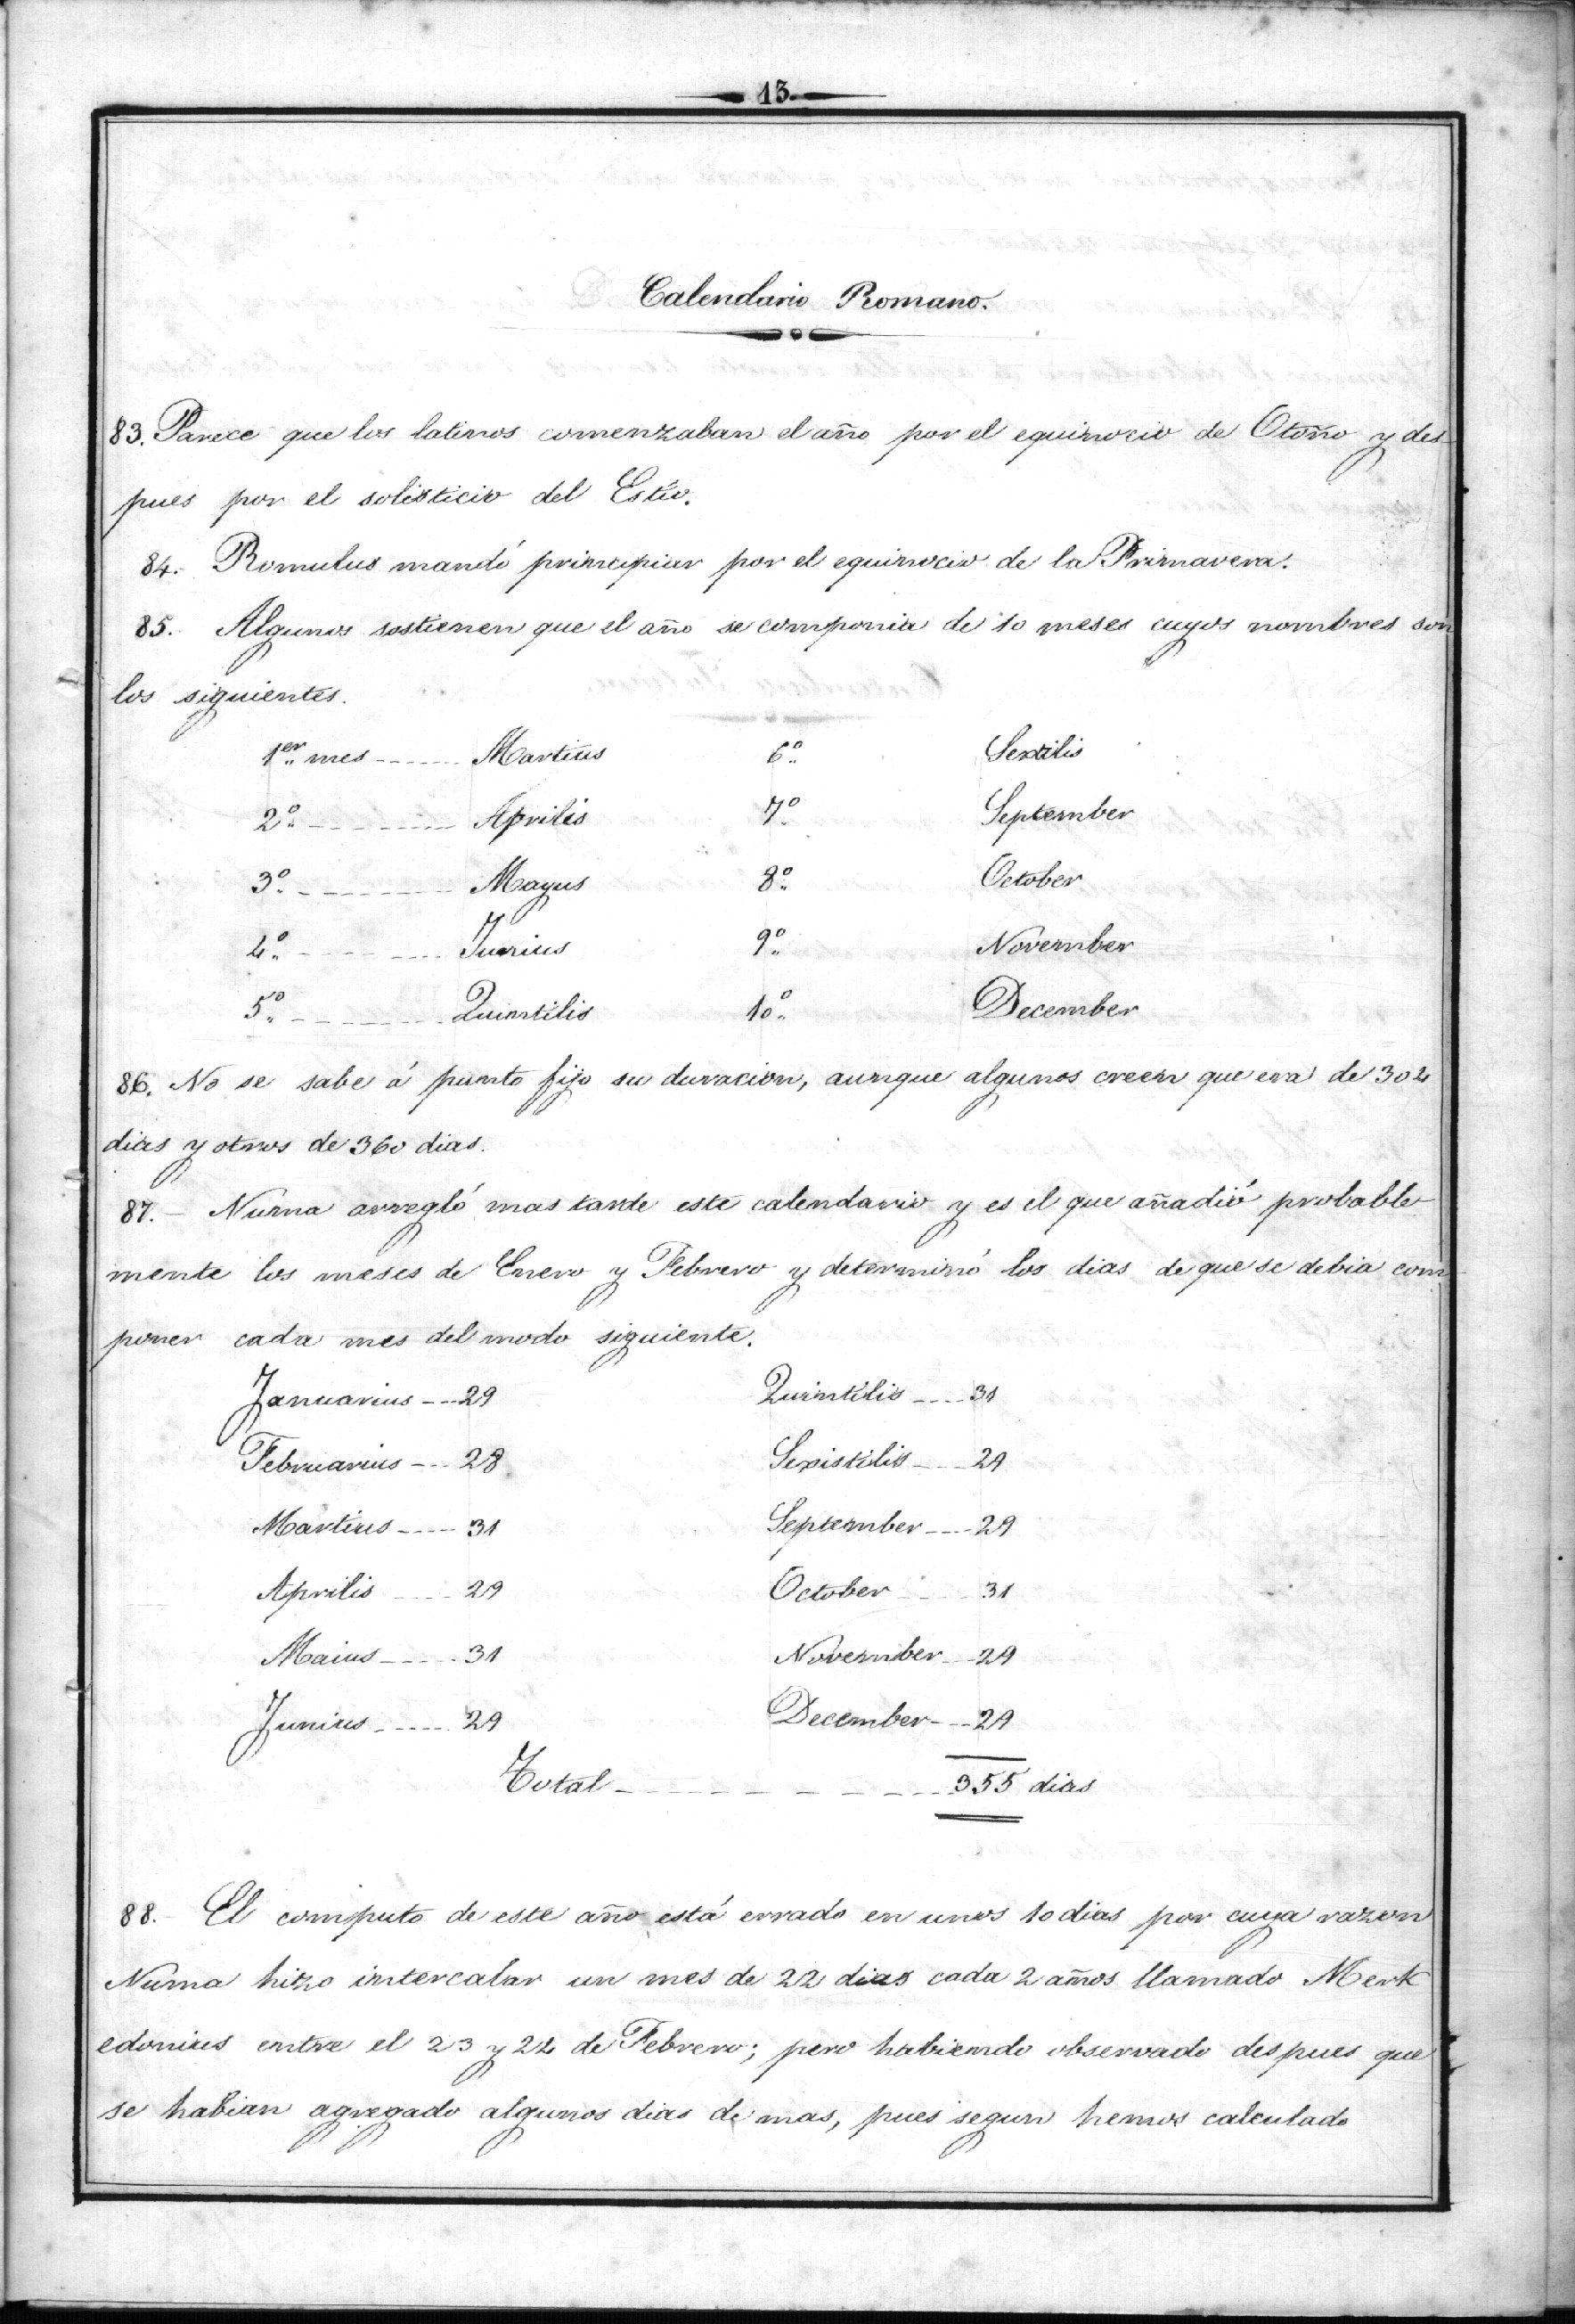 13.
Calendario Romano.
83. Parece que los latinos comenzaban el año por el equinocio de Otoño y des-
pues por el solisticio del Estío.
84. Romulus mandó principiar por el equinocio de la Primavera.
85. Algunos sostienen que el año se componia de 10 meses cuyos nombres son
los siguientes.
1er mes ------ Martius 6º Sextilis
2º -------- Aprilis 7º September
3º -------- Mayus 8º October
4º -------- Junius 9º November
5º -------- Quintilis 10º December
86. No se sabe á punto fijo su duracion, aunque algunos creen que era de 304
dias y otros de 360 dias.
87. - Numa arregló mas tarde este calendario y es el que añadió probable-
mente los meses de Enero y Febrero y determinó los dias de que se debia com-
poner cada mes del modo siguiente.
Januarius --- 29 Quintilis ---- 31
Februarius --- 28 Sexistilis ---- 29
Martius ---- 31 September ---- 29
Aprilis ---- 29 October ---- 31
Maius ----- 31 November --- 29
Junius ----- 29 December --- 29
Total ------------ 355 dias
88. - El computo de este año está errado en unos 10 dias por cuya razon
Numa hizo intercalar un mes de 22 dias cada 2 años llamado Merk
edonius entre el 23 y 24 de Febrero; pero habiendo observado despues que
se habian agregado algunos dias de mas, pues segun hemos calculado